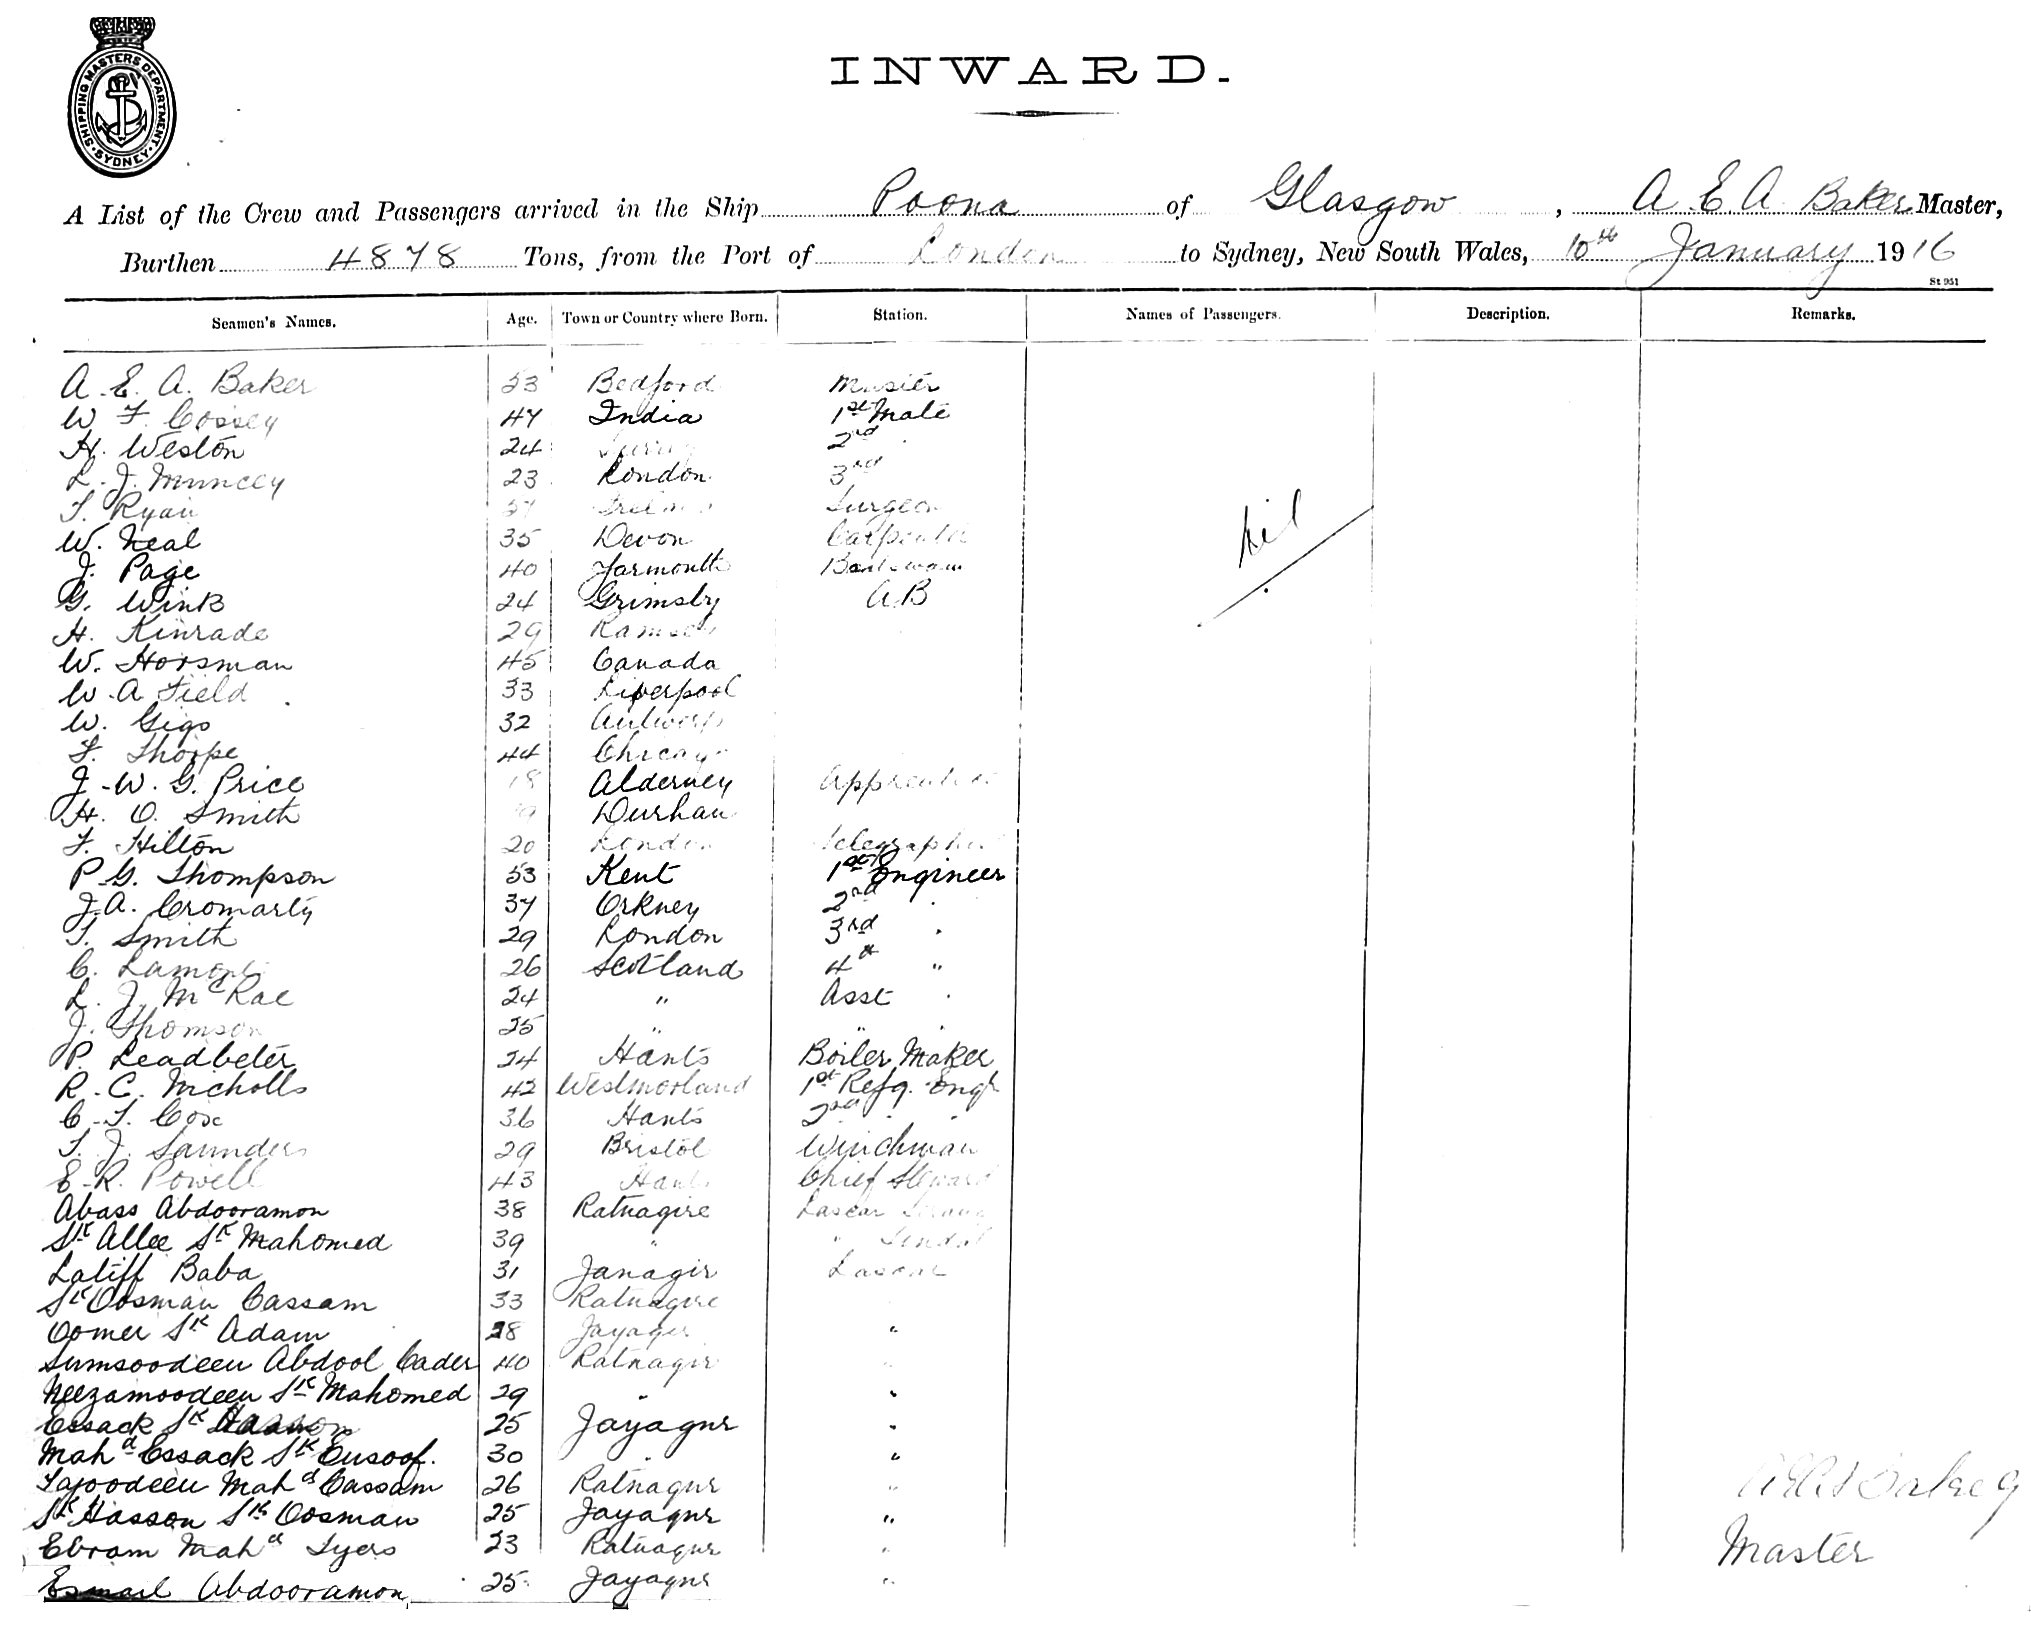 SHIPPING MASTERS DEPARTMENT. SYDNEY
INWARD.
A List of the Crew and Passengers arrived in the Ship Poona of Glasgow, A E A Baker Master,
Burthen 4878 Tons, from the Port of London to Sydney, New South Wales, 10th January 1916
St 951
Seamen's Names. Age. Town or Country where Born. Station. Names of Passengers. Description. Remarks.
A. E. A. Baker 53 Bedford Master
W F Cossey 47 India 1st Mate
H. Weston 24 Surrey 2nd
L. J. Muncey 23 London 3rd
T. Ryan Surgeon
W. Neal 35 Devon Carpenter
nil
J. Page 40 Yarmouth Boatswain
G. Wink 24 Grimsby AB
H. Kinrade 29 Ramsey
W. Horsman 45 Canada
W. A Field 33 Liverpool
W. Gigs 32 Antwerp
F. Thorpe 44 Chicago
J. W. G. Price 18 Alderney Apprentice
H. O. Smith Durham
F. Hilton 20 London Telegraphist
P. G. Thompson 53 Kent 1st Engineer
J. A. Cromarty 37 Orkney 2nd "
T. Smith 29 London 3rd "
C. Lamont 26 Scotland 4th "
L. J. McRae 24 " Asst "
J. Thomson 25 " " "
P. Leadbeter 24 Hants Boiler Maker
R. C. Nicholls 42 Westmorland 1st Refg. Engr
C. T. Cox 36 Hants 2nd " "
T. J. Saunders 29 Bristol Winchman
E. R. Powell 43 Hants Chief Steward
Abass Abdooramon 38 Ratnagire Lascar Serang
Sk Allee Sk Mahomed 39 " " Tendal
Latiff Baba 31 Janagir Lascar
Sk Oosman Cassam 33 Ratnagire
Oomer Sk Adam 28 Jayagir "
Sumsoodeen Abdool Cader 40 Ratnagir "
Neezamoodeen Sk Mahomed 29 " "
Essack Sk 25 Jayagur "
Mahd Essack Sk Eusoof. 30 " "
Tajoodeen Mahd Cassam 26 Ratnagur "
Sk Hasson Sk Oosman 25 Jayagur "
Ebram Mahd Syers 23 Ratnagur "
Esmail Abdooramon, 25 Jayagur "
A E A Baker
Master